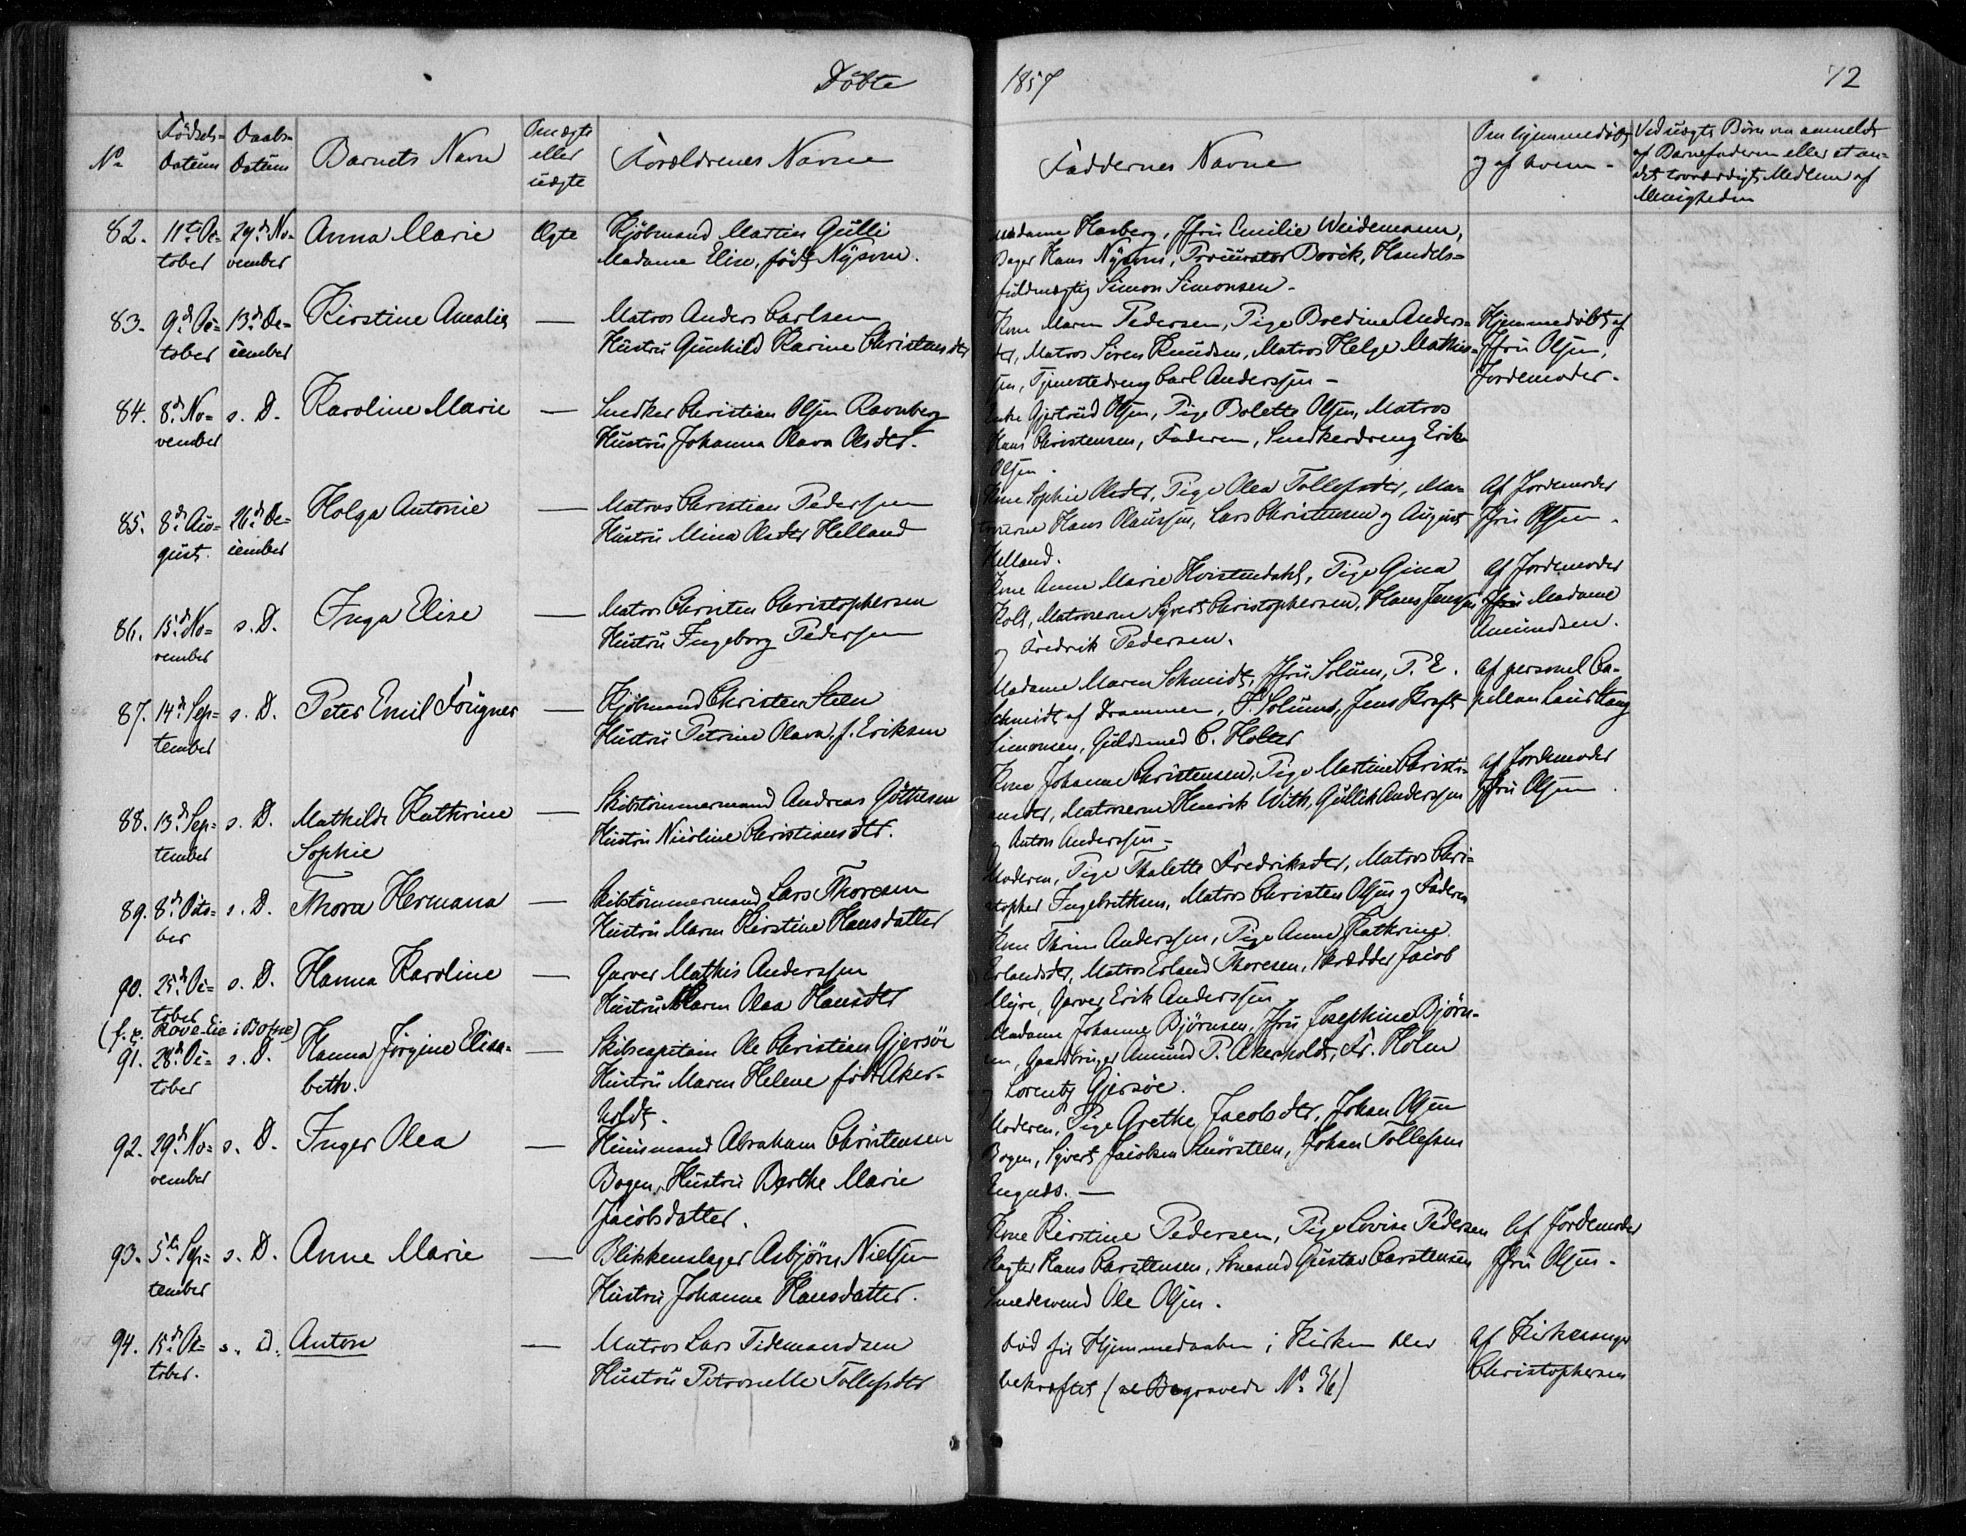 Döbte
1857
72
No
Födsels-
Datum
Daabs-
Datum
Barnets Navn
Om ægte
eller
uægte
Forældrenes Navne
Faddernes Navne
Om hjemmedöbt
og af hvem -
Ved uægte Börn om anmeldt
af Barnefaderen eller et an-
det troværdigt Medlem af
Menigheden
82. 11te Oc- 29de No- Anna Marie Ægte Kjöbmand Martin Gulli
tober vember Madame Elise, född Nysom.
Madame Hasberg, Jfru Emilie Weidemann,
Bager Hans Nysom, Procurator Borik, Handels-
fuldmægtig Simon Simonsen -
83. 9de Oc- 13de De- Kirstine Amalia — Matros Anders Carlsen
tober cember Hustru Gunhild Karine Christensdtr
Kone Maren Pedersen, Pige Bredine Anders-
dtr, Matros Sören Knudsen, Matros Helge Mathis-
sen, Tjenestedreng Carl Anderssen -
Hjemmedöbt af
Jfru Olsen,
Jordemoder -
84. 8de No- s. D. Karoline Marie — Snedker Christian Olsen Ravnberg
vember Hustru Johanna Olava Olsdtr.
Enke Gjertrud Olsen, Pige Bolette Olsen, Matros
Hans Christensen, Faderen, Snedkerdreng Erik
Olsen.
85. 8de Au- 26de De- Holga Antonie — Matros Christian Pederssen
gust. cember Hustru Mina Olsdtr Helland
Kone Sophie Olsdtr, Pige Olea Tollefsdtr, Ma-
troserne Hans Olaussen, Lars Christensen og August
Helland.
Af Jordemoder
Jfru Olsen.
86. 15de No- s. D. Inga Elise — Matros Christen Christophersen
vember Hustru Ingeborg Pederssen
Kone Anne Marie Hvistendahl, Pige Gina
Holt, Matroserne Syvert Christophersen, Hans Jenssen
og Fredrik Pedersen.
Af Jordemoder
Jfru Madame
Amundsen.
87. 14de Sep- s. D. Peter Emil Fougner — Kjöbmand Christen Steen
tember Hustru Petrine Olava f. Eriksen
Madame Maren Schmidt, Jfru Solum, P. E.
Schmidt af Drammen, P. Solum, Jens Kraft
Simonsen, Guldsmed C. Holter
Af personel Ca-
pellan Laur Stang
88. 13de Sep- s. D. Mathilde Kathrine — Skibstömmermand Andreas Göthesen
tember Sophie Hustru Nicoline Christiansdtr.
Kone Johanne Christensen, Pige Martine Christi-
ansdtr, Matroserne Henrik With, Gullik Anderssen
og Anton Anderssen -
af Jordemoder
Jfru Olsen.
89. 8de Octo- s. D. Thora Hermana — Skibstömmermand Lars Thoresen
ber Hustru Maren Kirstine Hansdatter
Moderen, Pige Thalette Fredriksdtr, Matros Chri-
stopher Ingebrethsen, Matros Christen Olsen og Faderen
90. 25de Oc- s. D. Hanna Karoline — Garver Mathis Anderssen
tober Hustru Maren Olea Hansdtr
Kone Thrine Anderssen, Pige Anne Kathrine
Erlandsdtr, Matros Erland Thoresen, Skrædder Jacob
Myre, Garver Erik Anderssen
(f. i Botne)
91. 28de Oc- s. D. Hanna Jörgine Elisa- — Skibscapitain Ole Christian Gjersöe
tober beth. Hustru Maren Helene född Aker-
holdt.
Madame Johanne Björnsen, Jfru Josephine Björn-
sen, Gaardbruger Amund P. Akerholdt, Fr. Holm
og Lorentz Gjersöe.
92. 29de No- s. D. Inger Olea — Huusmand Abraham Christensen
vember Bogen, Hustru Berthe Marie
Jacobsdatter.
Moderen, Pige Grethe Jacobsdtr, Johan Olsen
Bogen, Syvert Jacobsen Snörsteen, Johan Tollefsen
Engnæs. —
93. 5te Sep- s. D. Anne Marie — Blikkenslager Asbjörn Nielsen
tember Hustru Johanne Hansdatter.
Kone Kirstine Pedersen, Pige Lovise Pedersen
Slagter Hans Carstensen, Gustav Carstensen
Smedesvend Ole Olsen.
Af Jordemoder
Jfru Olsen -
94. 15de Oc- s. D. Anton — Matros Lars Tidemandsen
tober. Hustru Petronelle Tollefsdtr
död för Hjemmedaaben i Kirken blev
bekræftet (se Begravede No 36)
af Kirkesanger
Christophersen